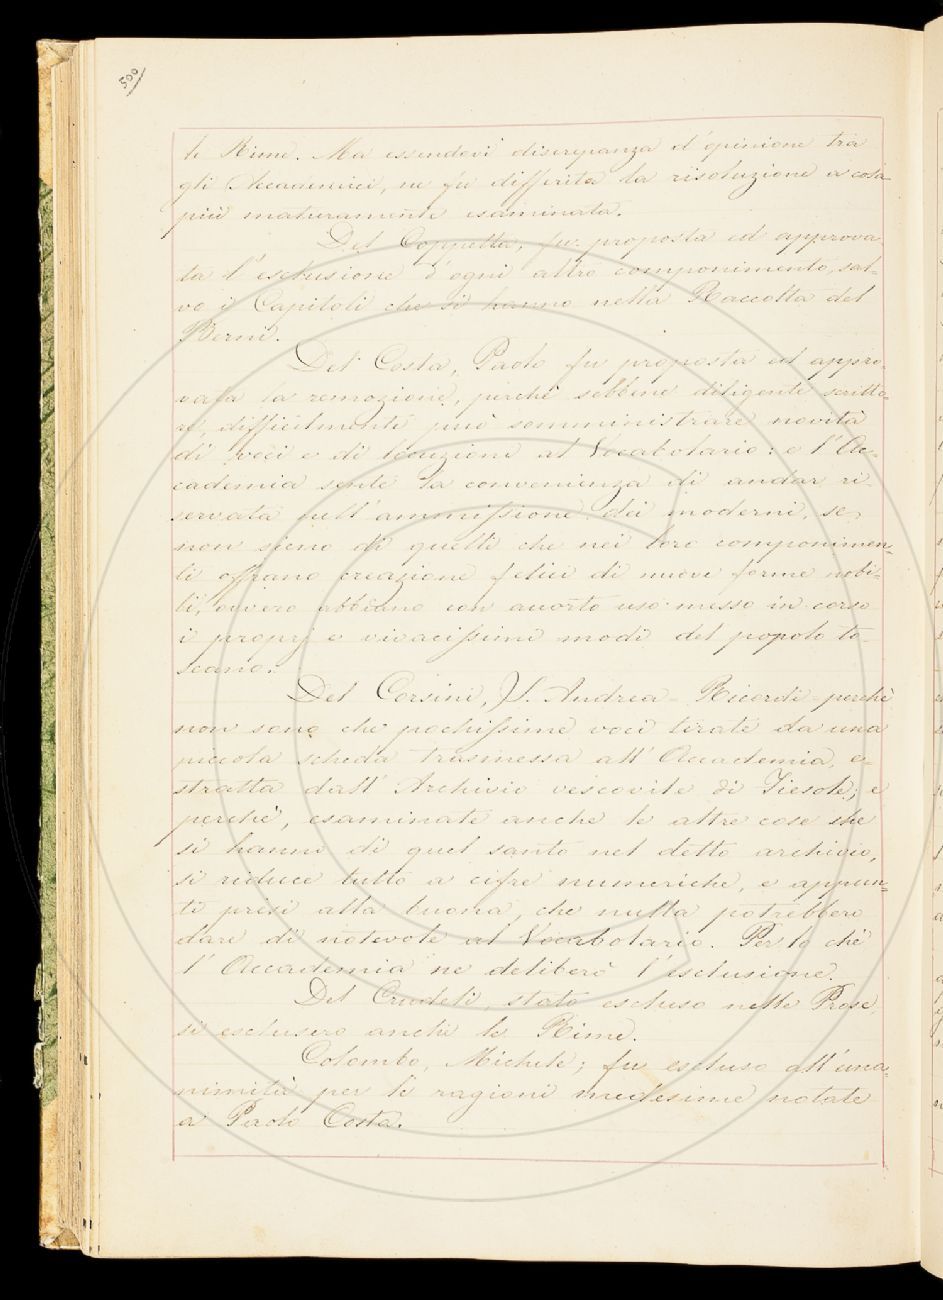 500
le Rime. Ma essendovi discrepanza d'opinione tra
gli Accademici, ne fu differita la risoluzione a cosa
più maturamente esaminata.
Del Coppetta, fu proposta ed approva-
ta l'esclusione d'ogni altro componimento, sal-
vo i Capitoli che si hanno nella Raccolta del
Berni.
Del Costa, Paolo fu proposta ed appro-
vata la remozione, perchè sebbene diligente scritto-
re, difficilmente può somministrare novità
di voci e di locuzioni al Vocabolario: e l'Ac-
cademia sente la convenienza di andar ri-
servata nell'ammissione dei moderni, se
non sieno di quelli che nei loro componimen-
ti offrano creazione felici di nuove forme nobi-
li, ovvero abbiano con accorto uso messo in corso
i proprj e vivacissimi modi del popolo to-
scano.
Del Corsini, S. Andrea - Ricordi - perchè
non sono che pochissime voci tirate da una
piccola scheda trasmessa all'Accademia, e-
stratta dall'Archivio vescovile di Fiesole; e
perchè, esaminate anche le altre cose che
si hanno di quel santo nel detto archivio,
si riduce tutto a cifre numeriche, e appun-
ti presi alla buona, che nulla potrebbero
dare di notevole al Vocabolario. Per lo chè
l'Accademia ne deliberò l'esclusione.
Del Crudeli, stato escluso nelle Prose,
si esclusero anche le Rime.
Colombo, Michele; fu escluso all'una-
nimità per le ragioni medesime notate
a Paolo Costa.